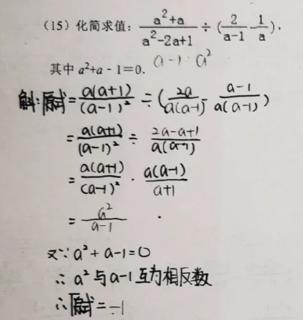 (15) 化简求值: (a²+a)/(a²-2a+1) ÷ (2/(a-1) - 1/a),
其中 a²+a-1=0. a-1 a²
解:原式 = a(a+1)/(a-1)² ÷ (2a/a(a-1) - (a-1)/a(a-1))
= a(a+1)/(a-1)² ÷ (2a-a+1)/a(a-1)
= a(a+1)/(a-1)² · a(a-1)/(a+1)
= a²/(a-1) .
又∵a²+a-1=0
∴a²与a-1互为相反数
∴原式=-1